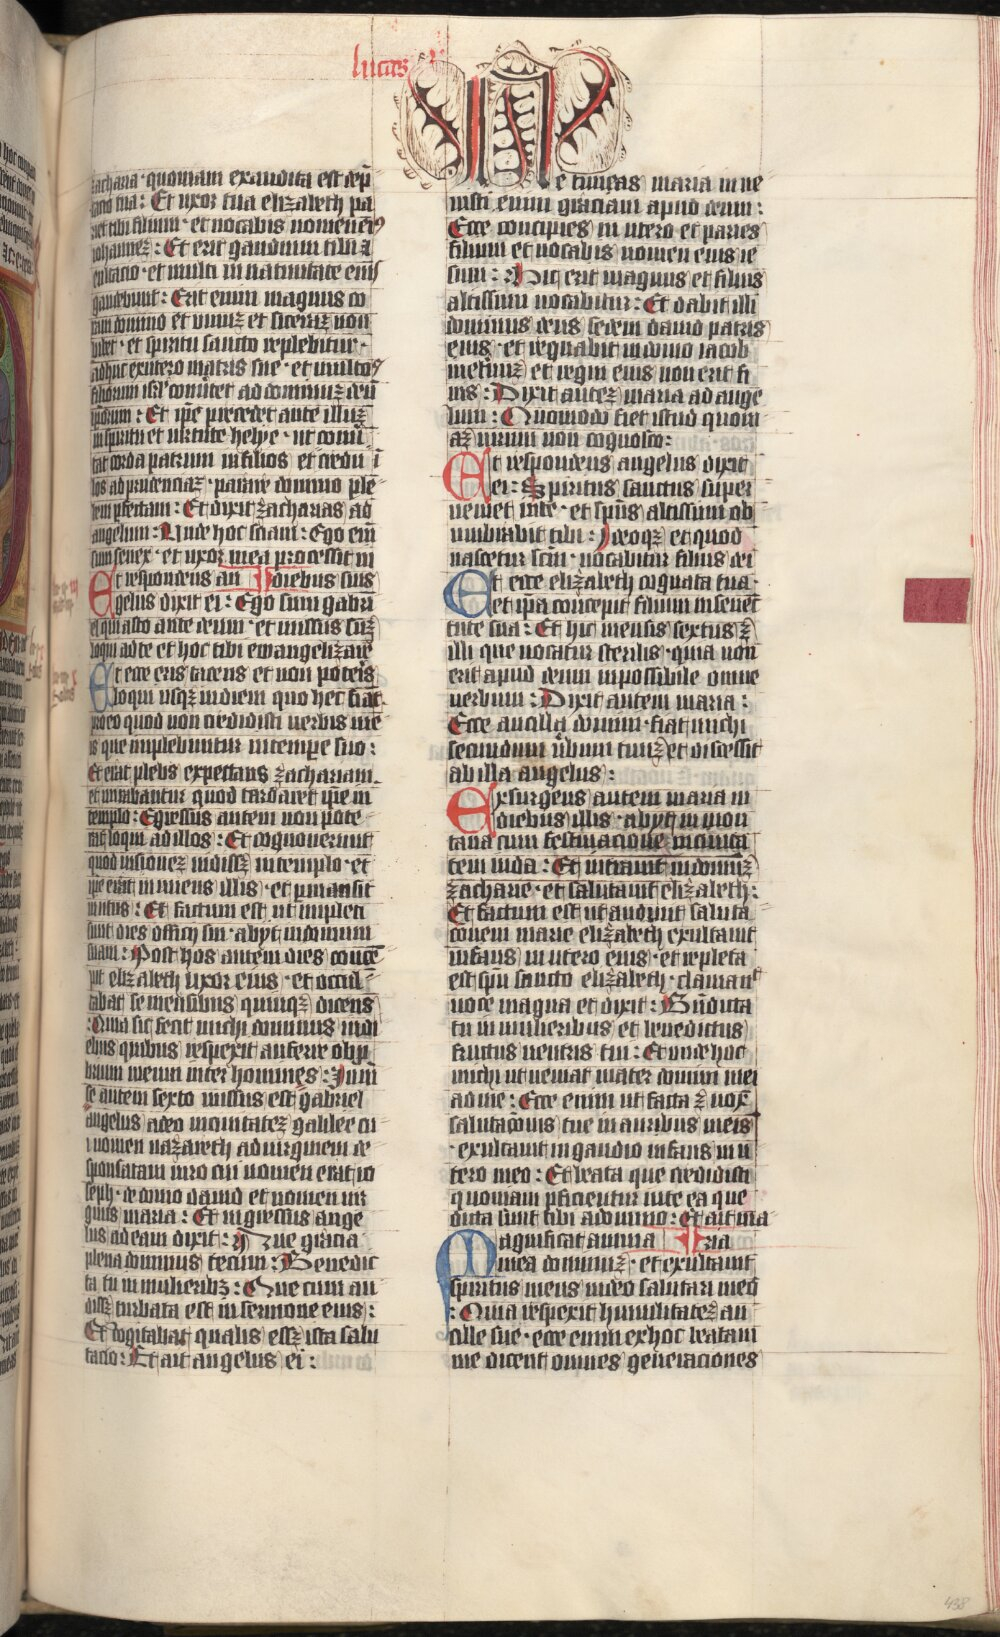 lucas
zacharia · quoniam exaudita est dep̄
tacio tua : Et uxor tua elizabeth pa
riet tibi filium · et vocabis nomen eiꝰ
iohannez : Et erit gaudium tibi ⁊
exultacio · et multi in natiuitate eius
gaudebunt : Erit enim magnus co
ram domino et vinuz et siceraz non
bibet · et spiritu sancto replebitur ·
adhuc ex utero matris sue · et multos
filiorum isrl̄ conūtet ad dominuz deū
ip̄orum : Et ip̄e precedet ante illuz
in spiritu et virtute helye · ut conū
tat corda patrum in filios et incredu
los ad prudenciaz · parare domino ple
bem p̄fectam : Et dixit zacharias ad
angelum : Vnde hoc sciam : Ego em̄
sum senex · et uxor mea processit in
Et respondens an diebus suis
gelus dixit ei : Ego sum gabri
el qui asto ante deum · et missus suz
loqui ad te et hoc tibi ewangelizare
Et ecce eris tacens et non poteris
loqui usqz in diem quo hec fiat ·
pro eo quod non credidisti verbis me
is que implebuntur in tempore suo :
Et erat plebs expectans zachariam ·
et mirabantur quod tardaret ip̄e in
templo : Egressus autem non pote
rat loqui ad illos : Et cognouerunt
quod visionez vidissz in templo · et
ip̄e erat innuens illis · et p̄mansit
mutus : Et factum est ut impleti
sunt dies officij sui · abijt in domum
suam : Post hos autem dies concē
pit elizabeth uxor eius · et occul
tabat se mensibus quinqz dicens
: Quia sic fecit michi dominus in di
ebus quibus respexit auferre obp̄
brium meum inter homines : In m̄
se autem sexto missus est gabriel
angelus a deo in ciuitatez galilee cu
i nomen nazareth ad virginem de
sponsatam viro cui nomen erat io
seph · de domo dauid et nomen vir
ginis maria : Et ingressus ange
lus ad eam dixit : Aue gracia
plena dominus tecum : Benedic
ta tu in mulieribz : Que cum au
dissz turbata est in sermone eius :
Et cogitabat qualis essz ista salu
tacio : Et ait angelus ei :
Ne timeas maria inue
nisti enim graciam apud deum :
Ecce concipies in utero et paries
filium et vocabis nomen eius ie
sum : Hic erit magnus et filius
altissimi vocabitur : Et dabit illi
dominus deus sedem dauid patris
eius · et regnabit in domo iacob
in et̄nuz et regni eius non erit fi
nis : Dixit autez maria ad ange
lum : Quomodo fiet istud quoni
az virum non cognosco :
Et respondens angelus dixit
ei : Spiritus sanctus super
ueniet in te · et sp̄us altissimi ob
umbrabit tibi : Ideoqz et quod
nascetur sc̄m · vocabitur filius dei
Et ecce elizabeth cognata tua ·
et ip̄a concepit filium in senec
tute sua : Et hic mensis sextus ē
illi que vocatur sterilis · quia non
erit apud deum inpossibile omne
verbum : Dixit autem maria :
Ecce ancilla domini · fiat michi
secundum v̄bum tuuz et discessit
ab illa angelus :
Exsurgens autem maria in
diebus illis · abijt in mon
tana cum festinacione in ciuita
tem iuda : Et intrauit in domuz
zacharie · et salutauit elizabeth :
Et factum est ut audiuit saluta
cionem marie elizabeth exultauit
infans in utero eius · et repleta
est sp̄u sancto elizabeth · clamauit
voce magna et dixit : Bn̄dicta
tu in mulieribus et benedictus
fructus ventris tui : Et vnde hoc
michi ut veniat mater domini mei
ad me : Ecce enim ut facta ē vox
salutac̄onis tue in auribus meis
· exultauit in gaudio infans in u
tero meo : Et beata que credidisti
quoniam p̄ficientur in te ea que
dicta sunt tibi a domino : Et ait ma
Magnificat anima ria
mea dominuz · et exultauit
spiritus meus in deo salutari meo
: Quia respexit humilitatez an
cille sue · ecce enim ex hoc beatam
me dicent omnes generaciones
438